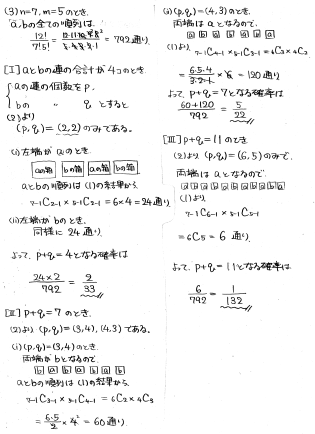 (3) n=7, m=5のとき.
a, bの全ての順列は
12!/7!5! = 12·11·10·9·8/5·4·3·2·1 = 792通り
[I] aとbの連の合計が4つのとき.
{aの連の個数をp.
bの 〃 q とすると
(2)より
(p, q)=(2,2)のみである。
(i) 左端がaのとき.
aの箱 bの箱 aの箱 bの箱
aとbの順列は(1)の結果から.
7-1C2-1 × 5-1C2-1 = 6×4 = 24通り
(ii) 左端がbのとき.
同様に 24通り
よって. p+q=4となる確率は
24×2/792 = 2/33
[II] p+q=7のとき.
(2)より (p,q)=(3,4),(4,3)である。
(i) (p,q)=(3,4)のとき.
両端がbとなるので.
b a b a b a b
aとbの順列は(1)の結果から.
7-1C3-1 × 5-1C4-1 = 6C2×4C3
= 6·5/2 × 4 = 60通り
(ii) (p,q)=(4,3)のとき.
両端はaとなるので
a b a b a b a
(1)より.
7-1C4-1 × 5-1C3-1 = 6C3×4C2
= 6·5·4/3·2·1 × 6 = 120通り
よって p+q=7となる確率は
60+120/792 = 5/22
[III] p+q=11のとき
(2)より (p,q)=(6,5)のみで.
両端はaとなるので.
a b a b a b a b a b a
(1)より.
7-1C6-1 × 5-1C5-1
= 6C5 = 6通り
よって. p+q=11となる確率は
6/792 = 1/132